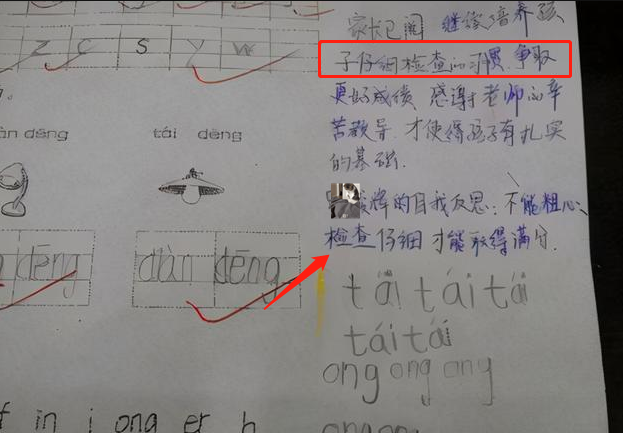 z c s y w
家长已阅 继续培养孩
子仔细检查的习惯 争取
更好成绩 感谢老师的辛
苦教导.才使得孩子有扎实
的基础.
àn dēng
tái dēng
辉的自我反思:不能粗心、
检查仔细才能取得满分.
dēng
diàn dēng
tái tái tái
tái tái
ong ong ong
f in i ong er h
ongong